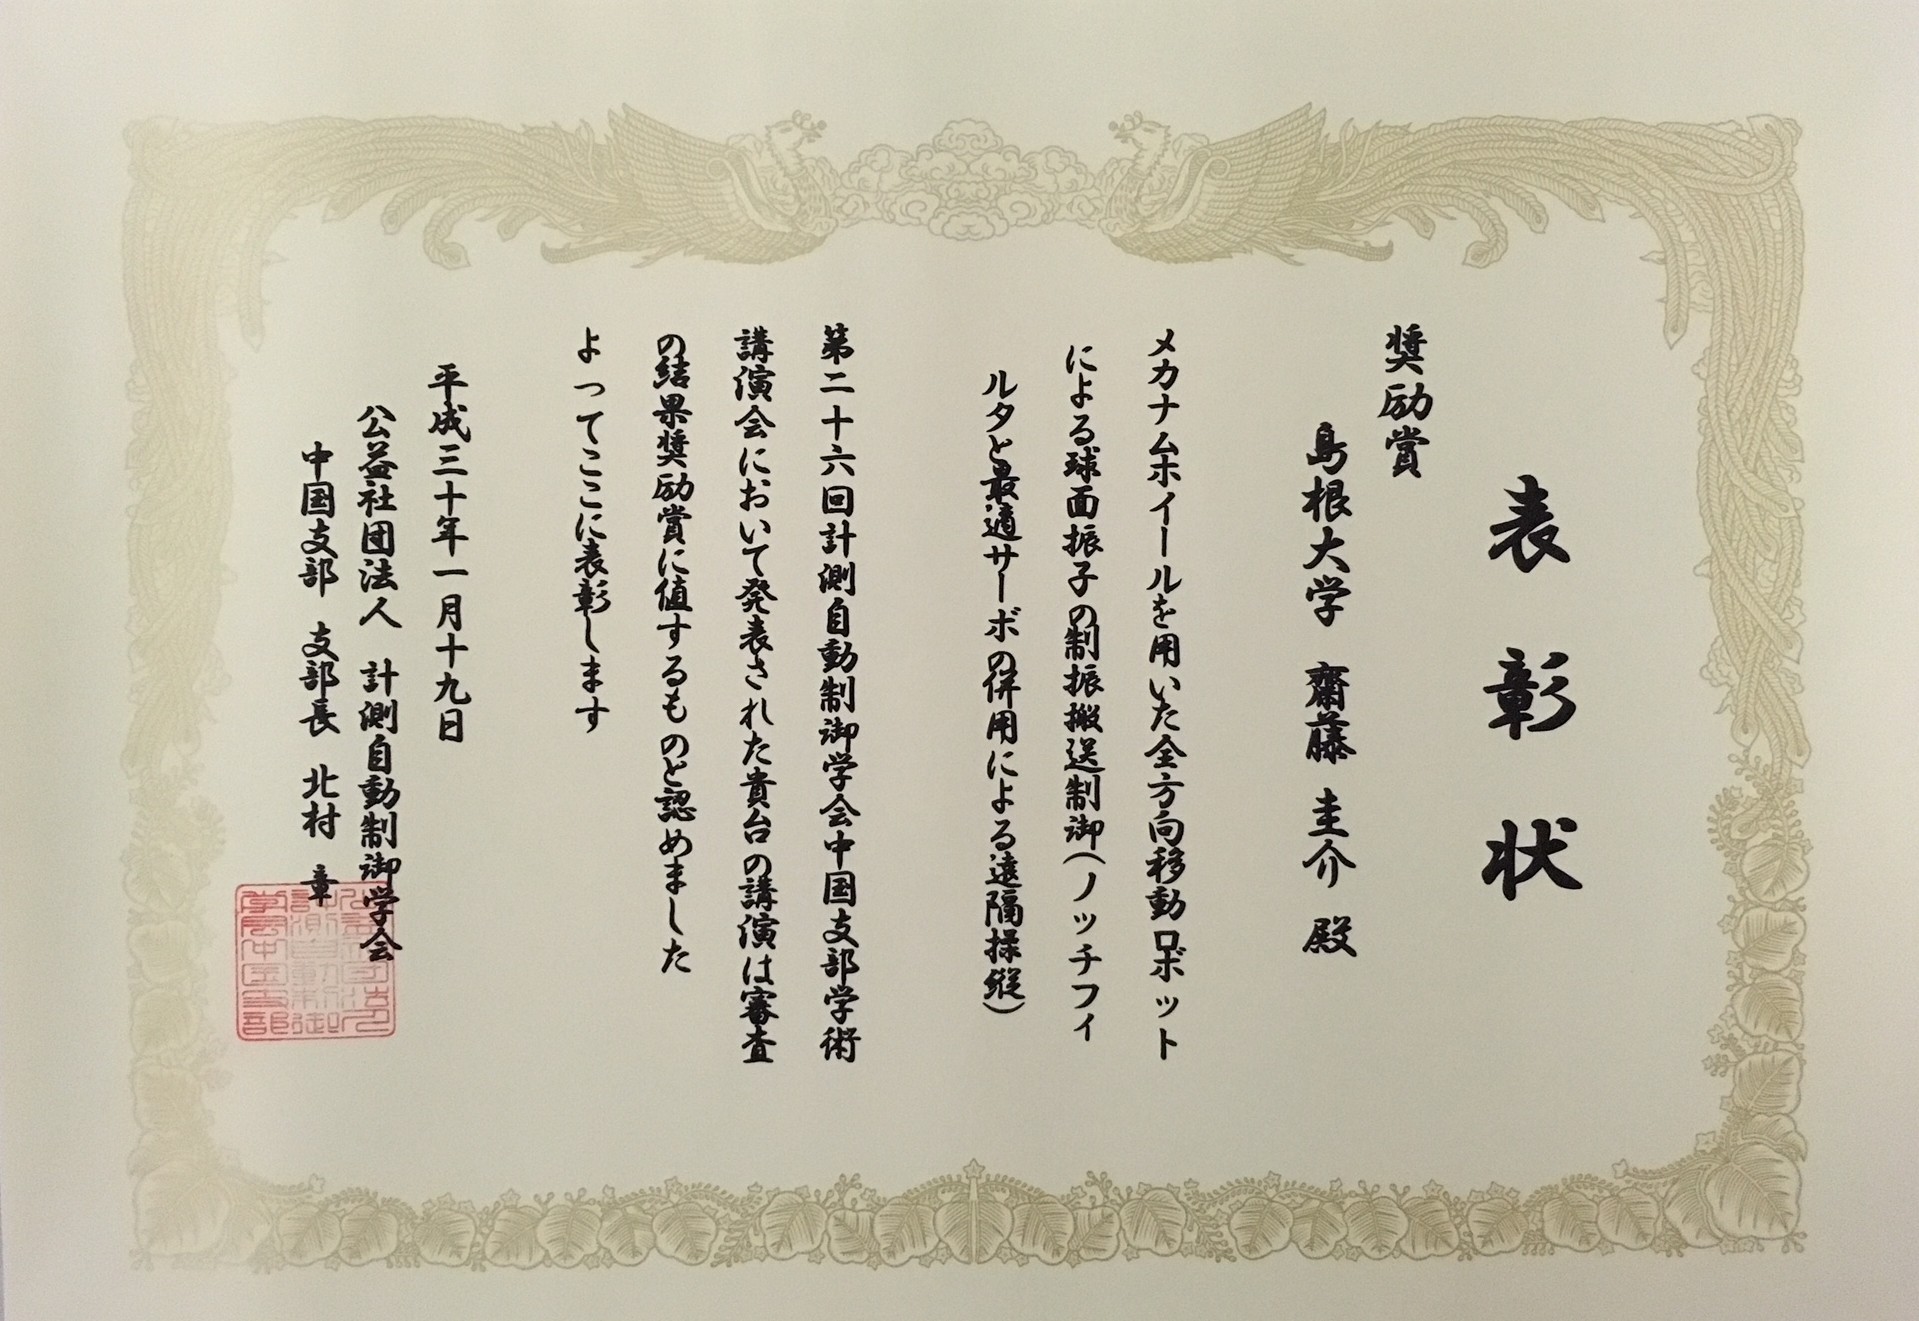 表彰状
奨励賞
島根大学 齋藤 圭介 殿
メカナムホイールを用いた全方向移動ロボット
による球面振子の制振搬送制御(ノッチフィ
ルタと最適サーボの併用による遠隔操縦)
第二十六回計測自動制御学会中国支部学術
講演会において発表された貴台の講演は審査
の結果奨励賞に値するものと認めました
よってここに表彰します
平成三十年一月十九日
公益社団法人 計測自動制御学会
中国支部 支部長 北村 章
公益社団法人
計測自動制御
学会中国支部